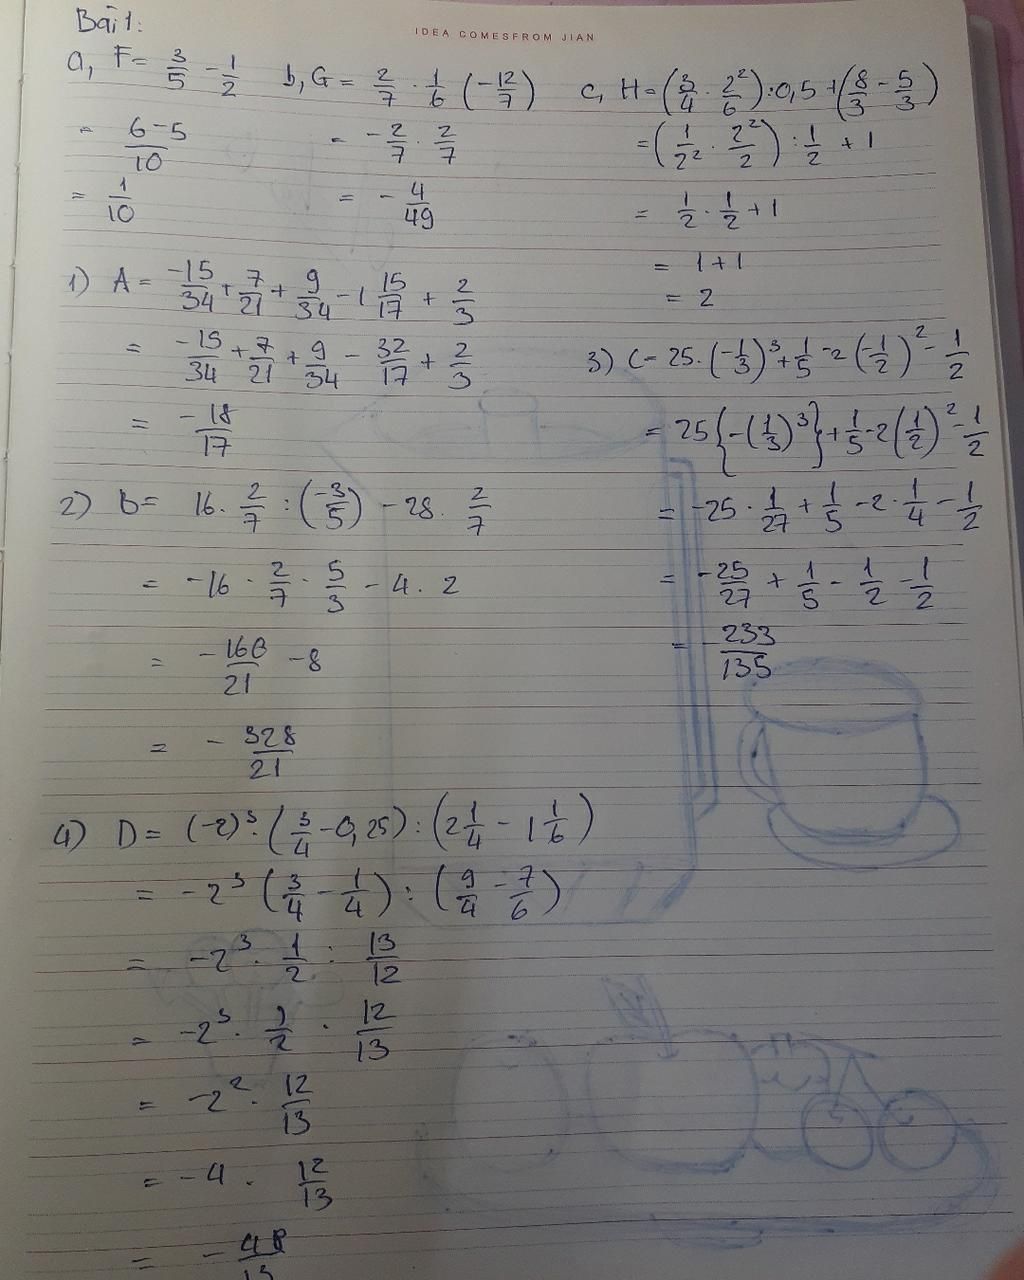 Bài 1:
IDEA COMESFROM JIAN
a, F = 3/5 - 1/2
= (6-5)/10
= 1/10
b, G = 2/7 . 1/6 (-12/7)
= -2/7 . 2/7
= -4/49
c, H = (3/4 . 2²/6) : 0,5 + (8/3 - 5/3)
= (1/2² . 2²/2) : 1/2 + 1
= 1/2 . 1/2 + 1
= 1 + 1
= 2
1) A = -15/34 + 7/21 + 9/34 - 1 15/17 + 2/3
= -15/34 + 7/21 + 9/34 - 32/17 + 2/3
= -18/17
2) B = 16 . 2/7 : (-3/5) - 28 . 2/7
= -16 . 2/7 . 5/3 - 4 . 2
= -160/21 - 8
= -328/21
3) C = 25 . (-1/3)³ + 1/5 - 2 (-1/2)² - 1/2
= 25 {-(1/3)³} + 1/5 - 2 (1/2)² - 1/2
= -25 . 1/27 + 1/5 - 2 . 1/4 - 1/2
= -25/27 + 1/5 - 1/2 - 1/2
= -233/135
4) D = (-2)³ . (3/4 - 0,25) : (2 1/4 - 1 1/6)
= -2³ (3/4 - 1/4) : (9/4 - 7/6)
= -2³ . 1/2 : 13/12
= -2³ . 1/2 . 12/13
= -2² . 12/13
= -4 . 12/13
= -48/13